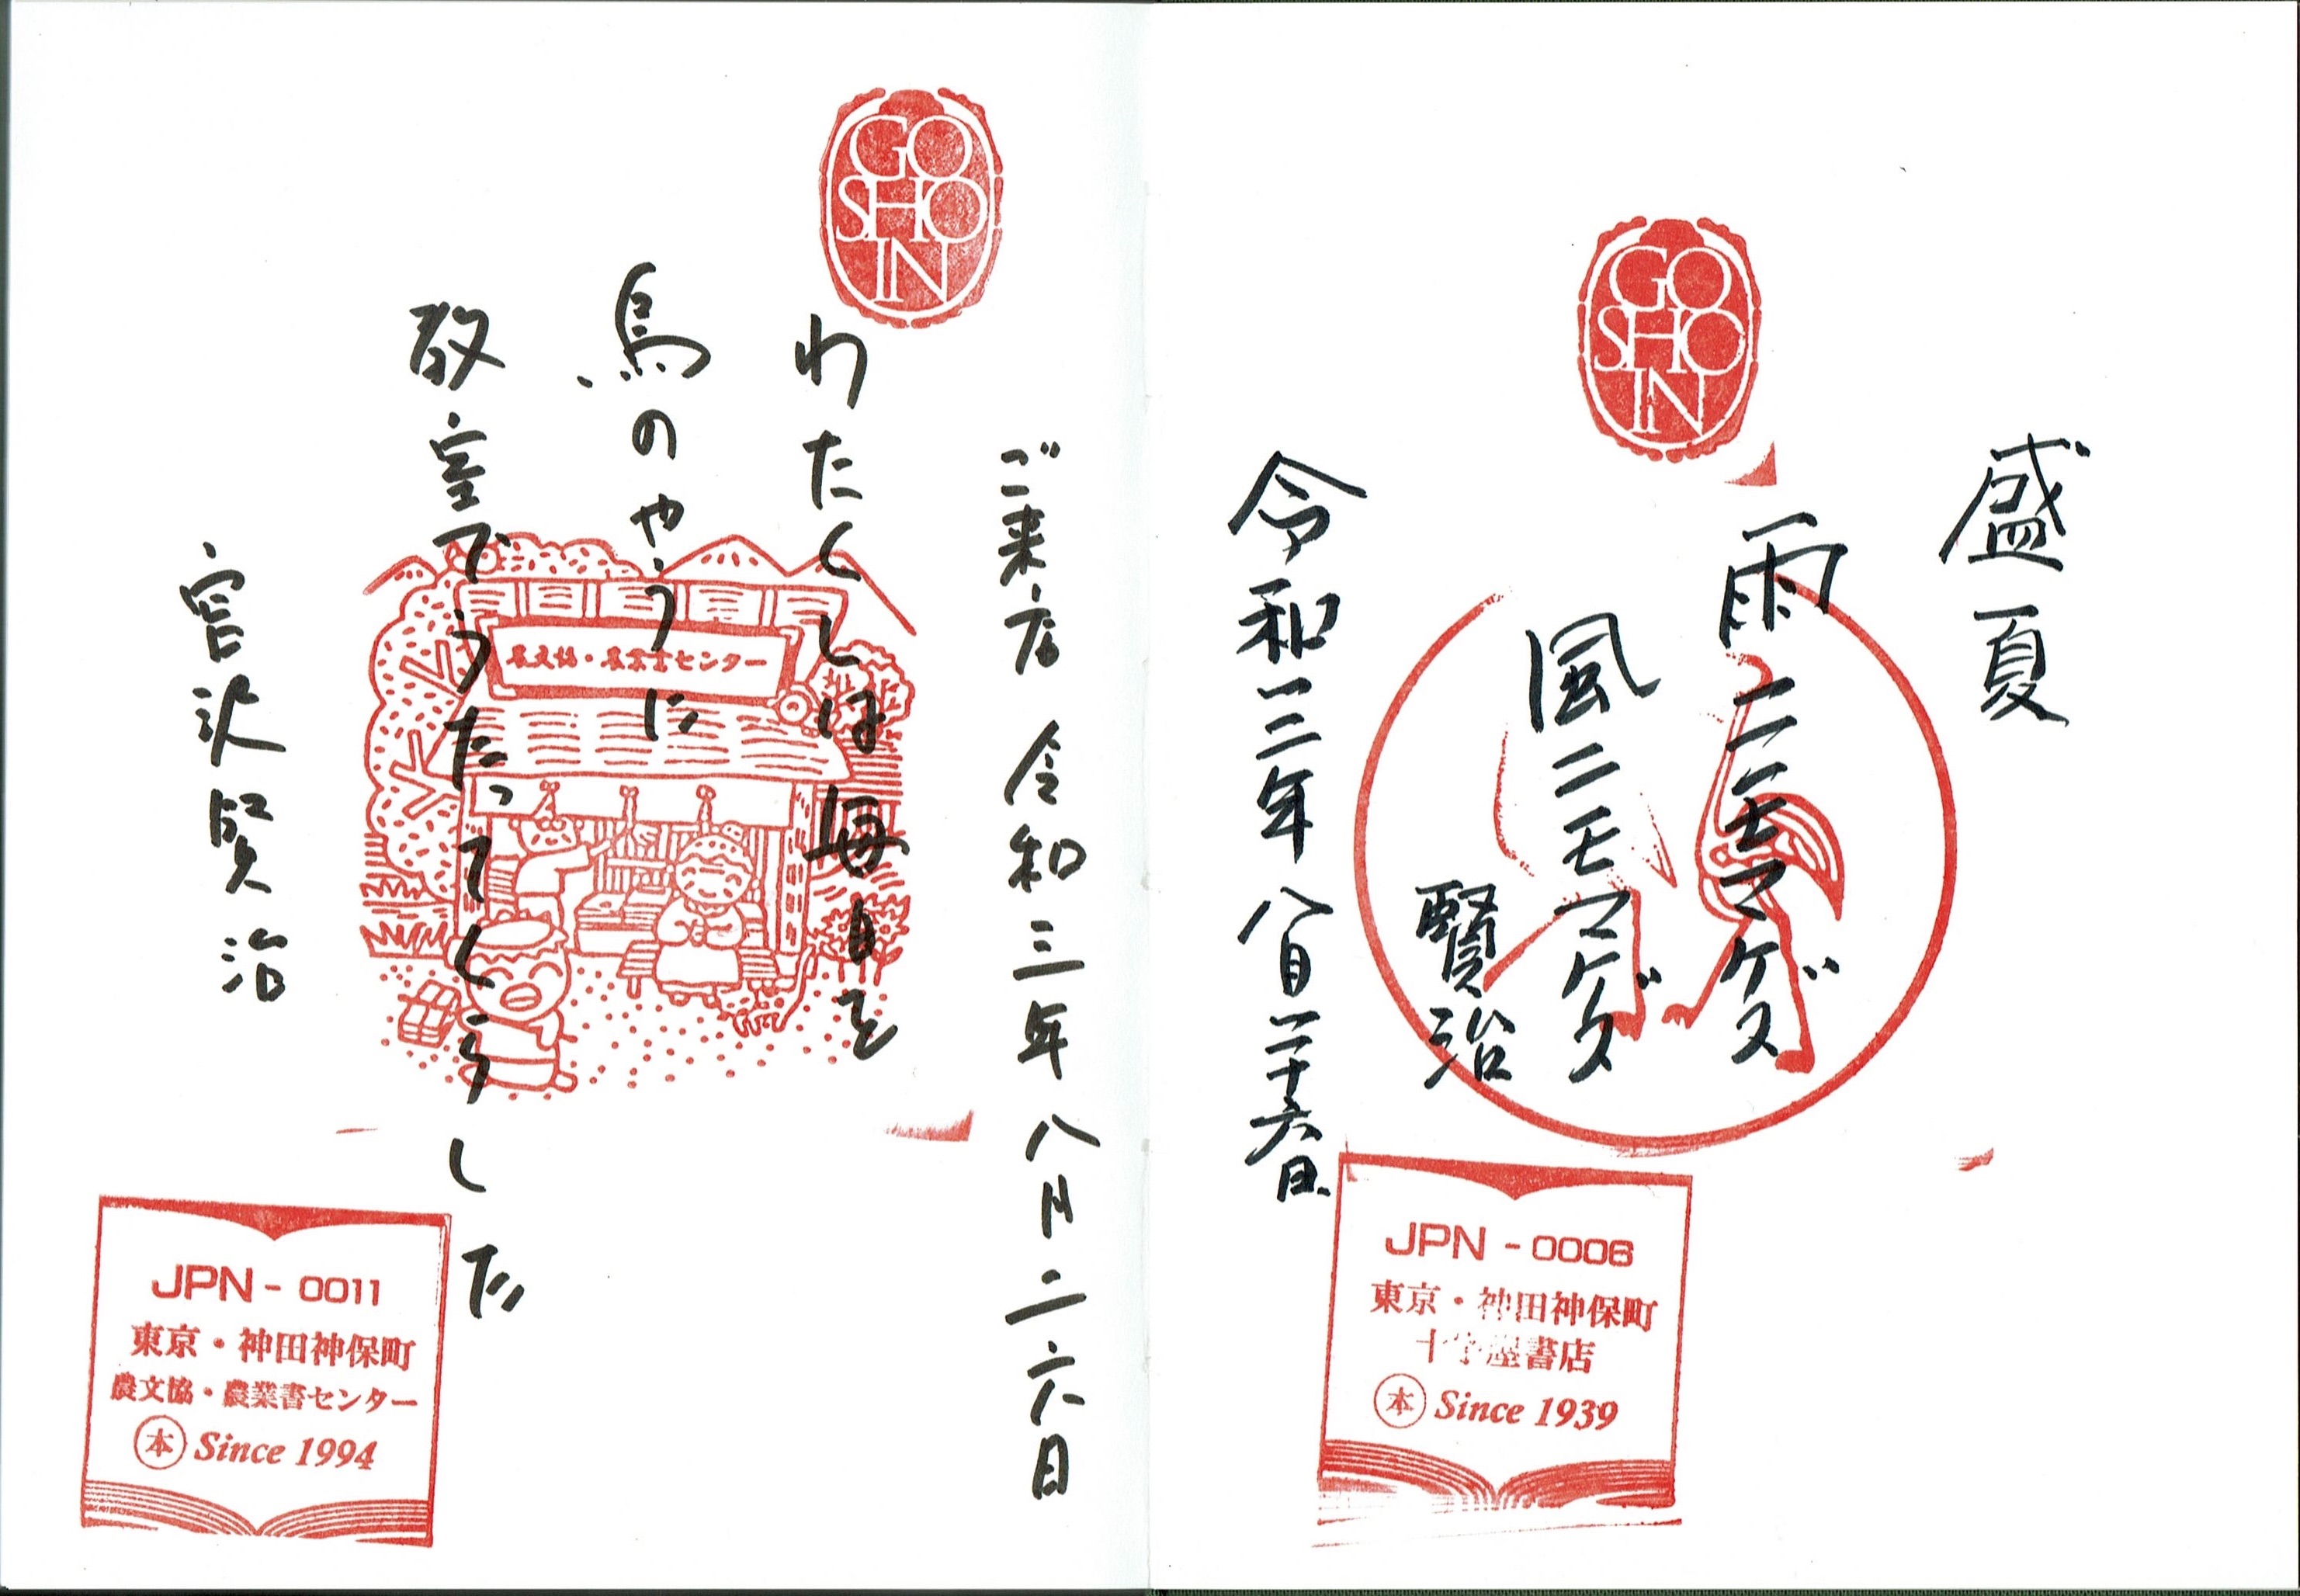 GO
SHO
IN
盛夏
雨ニモマケズ
風ニモマケズ
賢治
令和三年八月二十六日
JPN-0006
東京・神田神保町
十字屋書店
本 Since 1939
GO
SHO
IN
ご来店 令和三年八月二六日
わたくしは毎日を
鳥のやうに
教室でうたってくらした
宮沢賢治
農文協・農業書センター
JPN-0011
東京・神田神保町
農文協・農業書センター
本 Since 1994